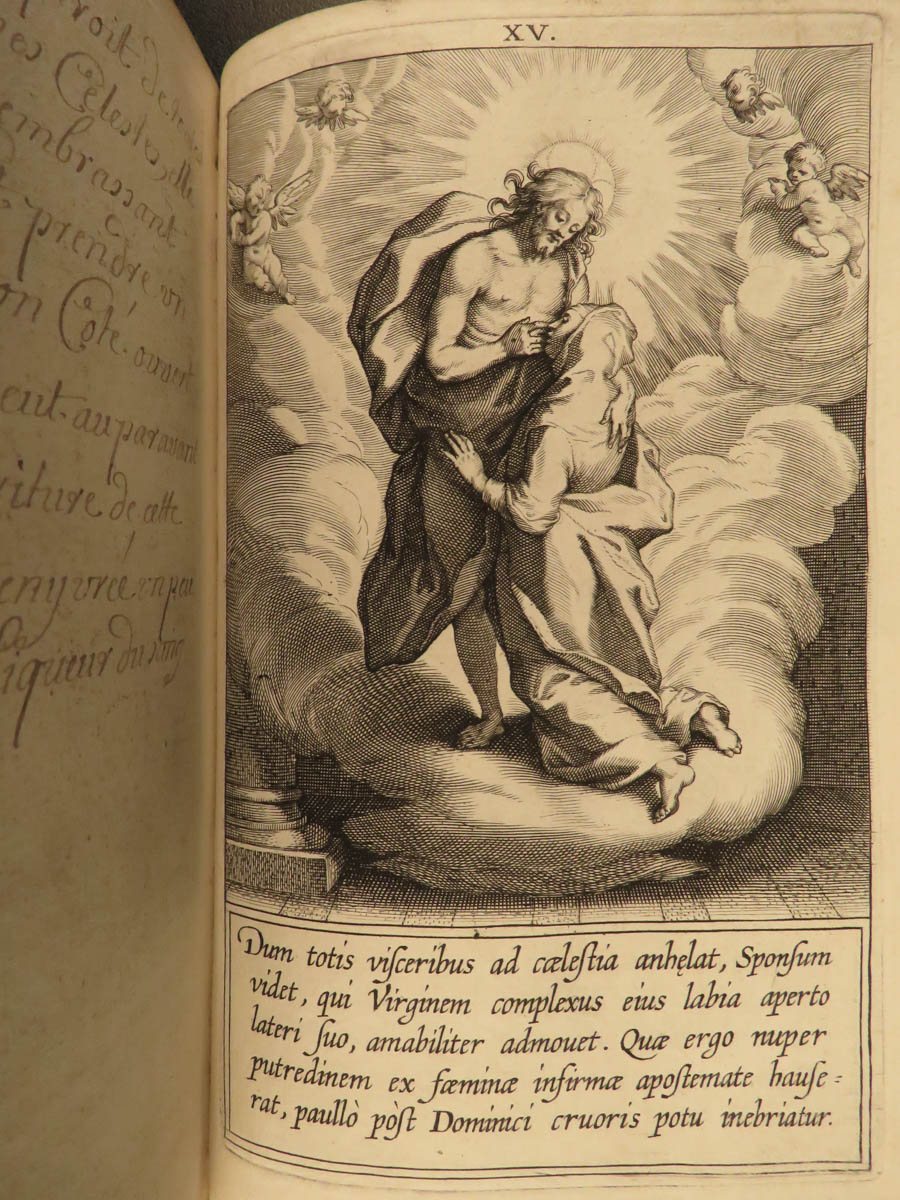 oit de
Celestes, elle
embrassant
prendre un
on Coté. ouvert
eut. auparavant
riture de cette
enyvrée un peu
iqueur du sang
XV.
Dum totis viſceribus ad cæleſtia anhęlat, Sponſum
videt, qui Virginem complexus eius labia aperto
lateri ſuo, amabiliter admouet. Quæ ergo nuper
putredinem ex fœminæ infirmæ apoſtemate hauſe=
rat, paullò pòſt Dominici cruoris potu inebriatur.